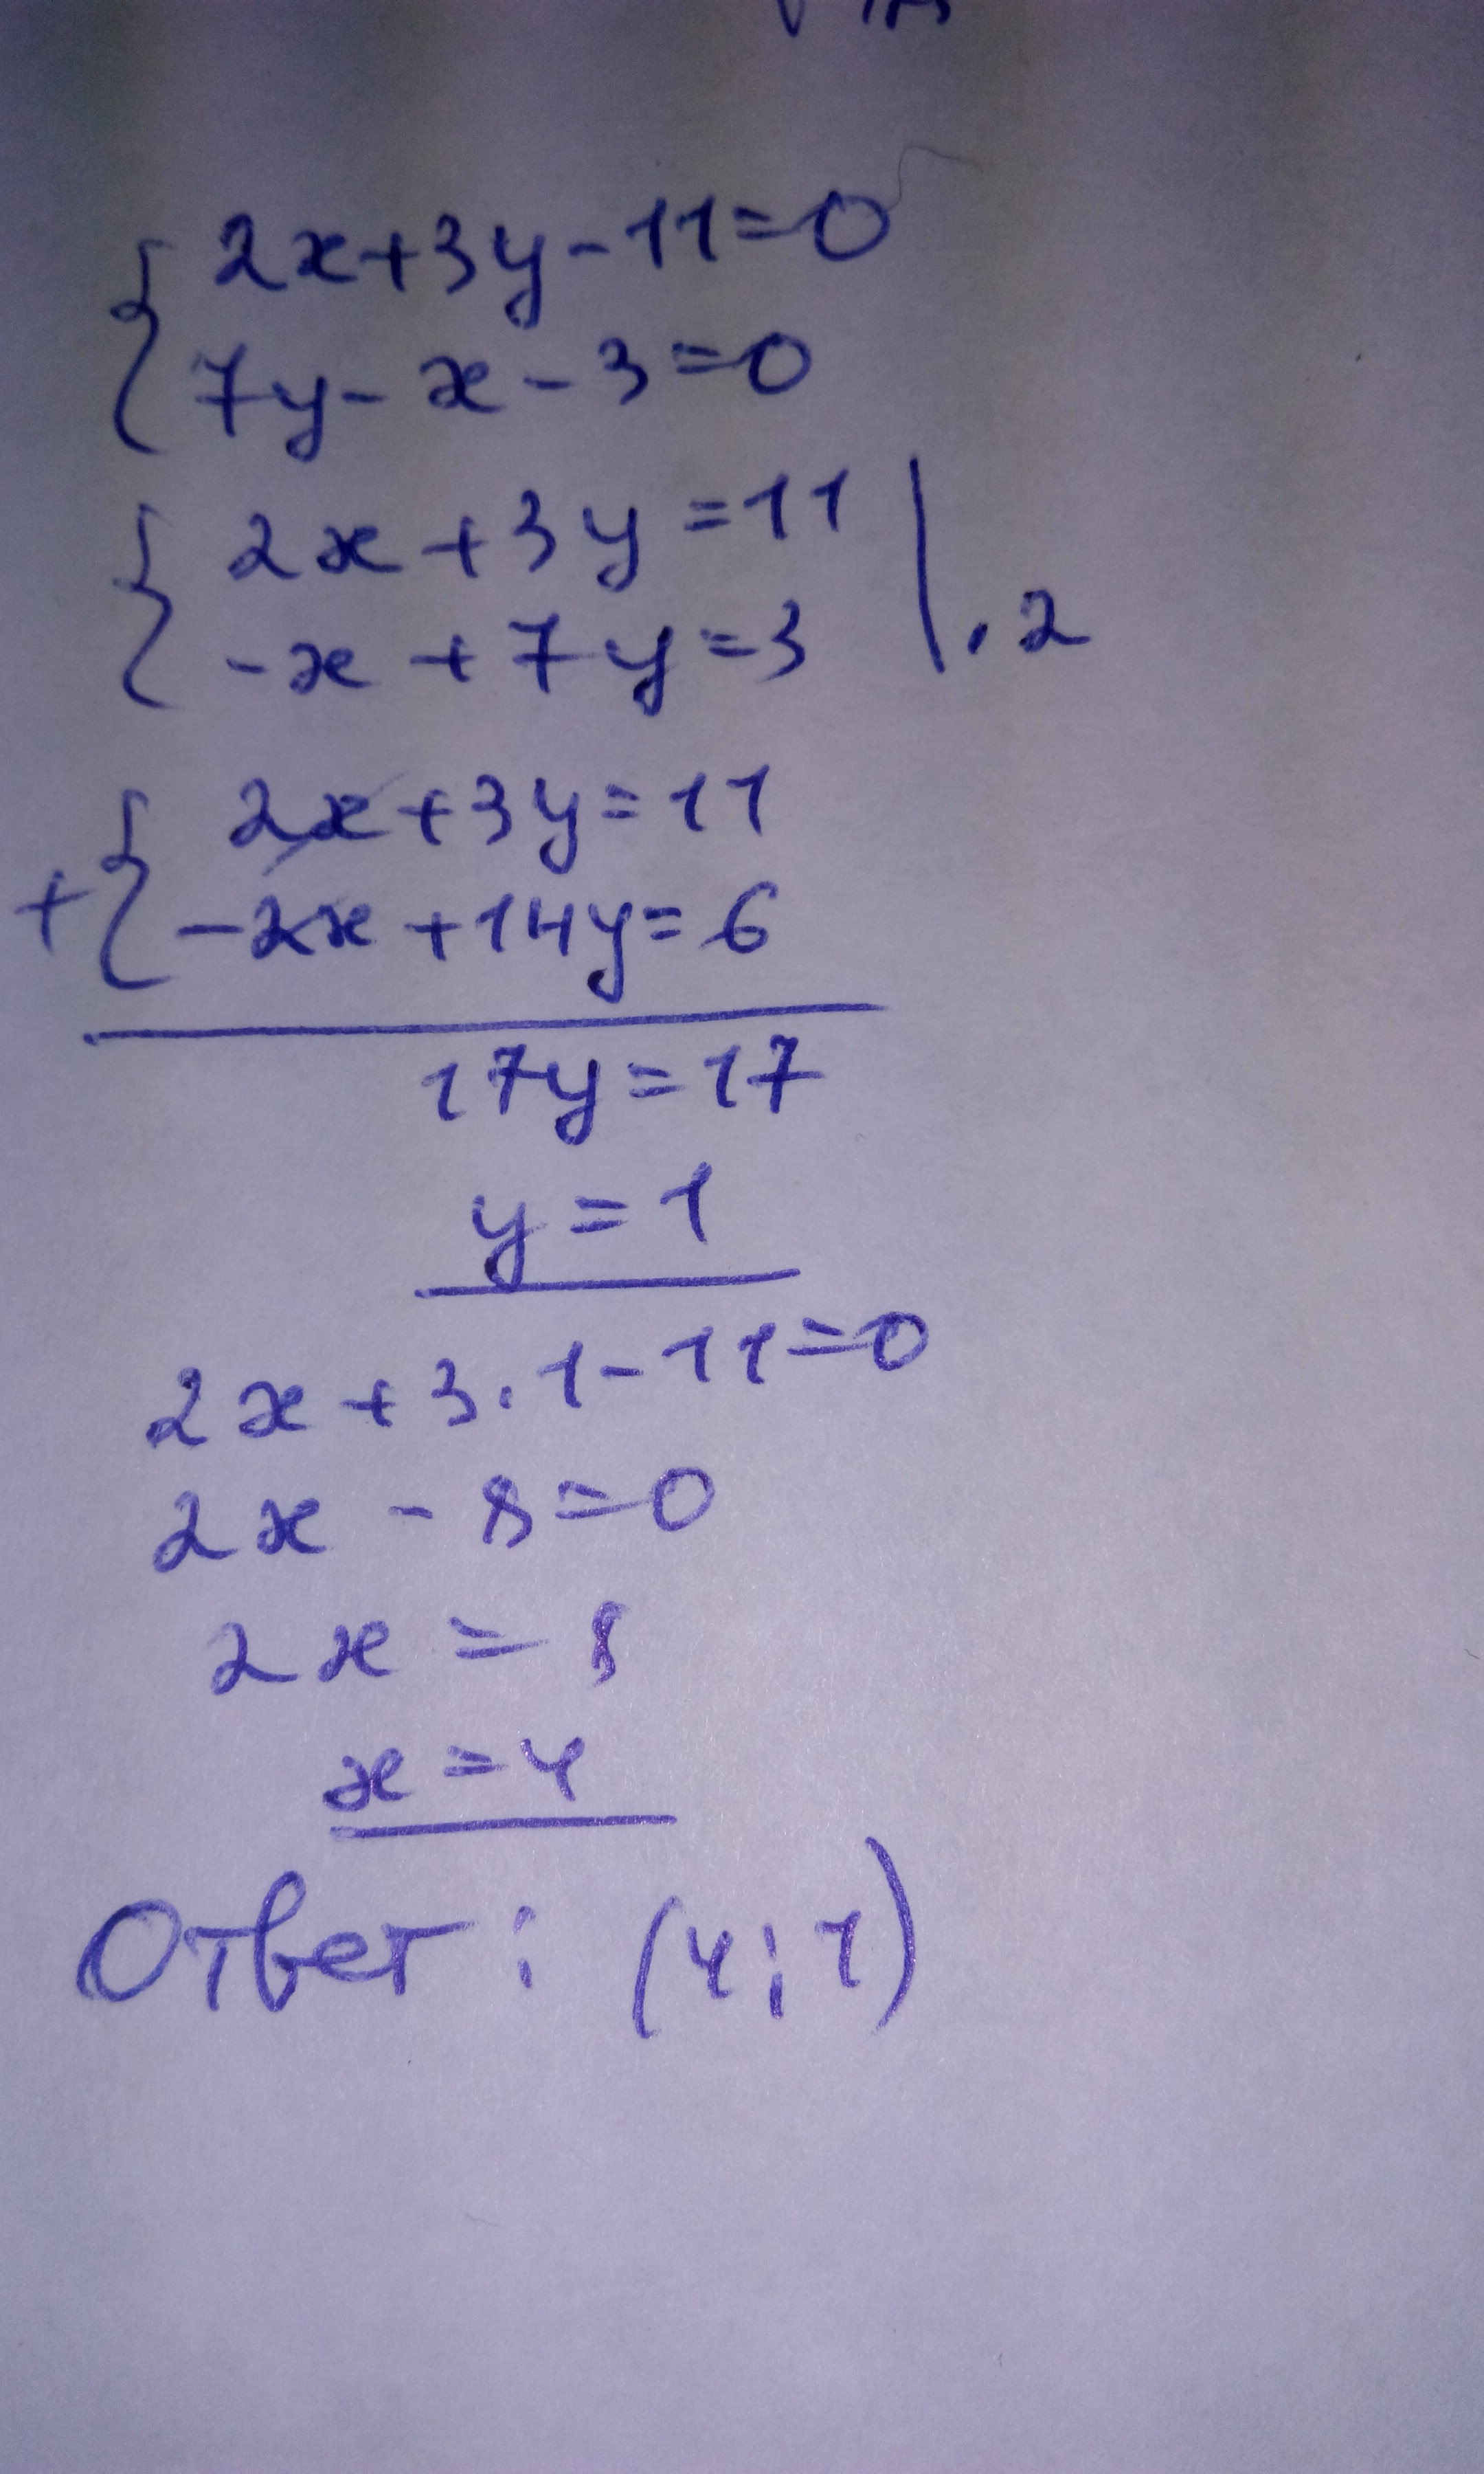 { 2x+3y-11=0
7y-x-3=0
{ 2x+3y=11
-x+7y=3 | ·2
+ { 2x+3y=11
-2x+14y=6
17y=17
y=1
2x+3·1-11=0
2x-8=0
2x=8
x=4
Ответ: (4;1)